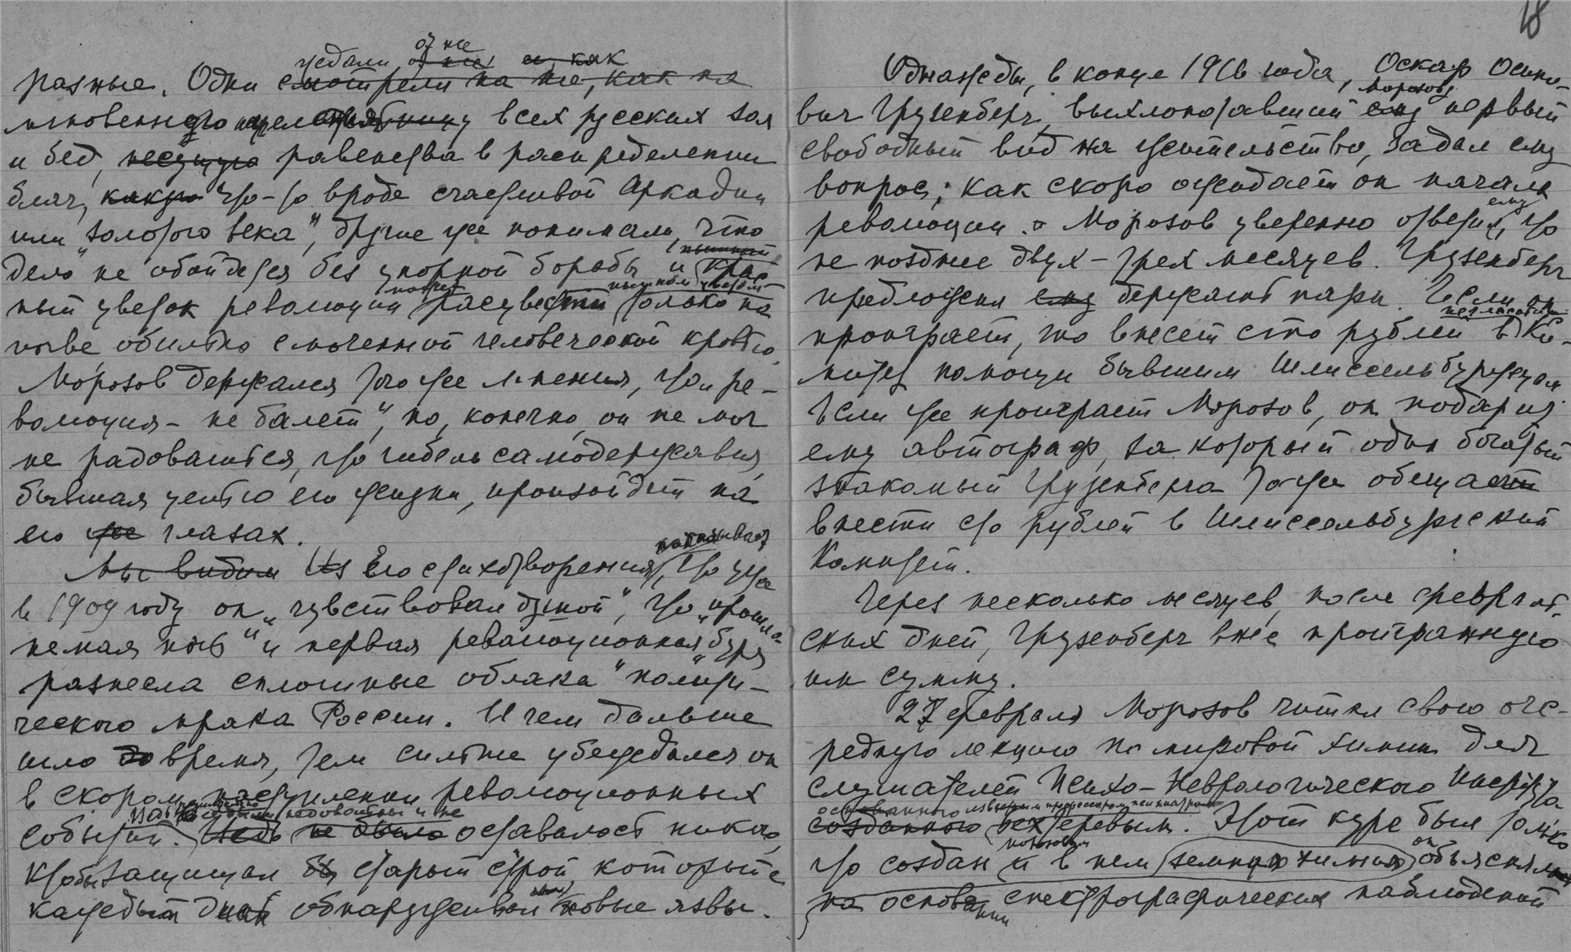 разные. Одни ждали от нее, как
мгновенного исцеления всех русских зол
и бед, равенства в распределении
благ, что-то вроде счастливой Аркадии
или "золотого века", другие же понимали, что
дело не обойдется без упорной борьбы и
ный цветок революции расцвести только на
почве обильно смоченной человеческой кровью.
Морозов держался того же мнения, что "ре-
волюция - не балет", но, конечно, он не мог
не радоваться, что гибель самодержавия,
бывшая целью его жизни, произойдет на
его же глазах.
Мы видим Из Его стихотворения показывают, что уже
в 1909 году он "чувствовал душой", что "прошла
немая ночь" и первая революционная "буря
разнесла сплошные облака" полити-
ческого мрака России. И чем дальше
шло время, тем сильнее убеждался он
в скором наступлении революционных
событий. не было оставалось никого,
кто бы защищал старый строй который
каждый день обнаруживал новые язвы.
18
Однажды, в конце 1916 года, Оскар Осипо-
вич Грузенберг, выхлопотавший Морозову первый
свободный вид на жительство, задал ему
вопрос: как скоро ожидает он начала
революции. Морозов уверенно ответил ему, что
не позднее двух-трех месяцев. Грузенберг
предложил ему держать пари. Если он
проиграет, то внесет сто рублей в Ко-
митет помощи бывшим Шлиссельбуржцам
Если же проиграет Морозов, он подарит
ему автограф, за который один богатый
знакомый Грузенберга тоже обещает
внести сто рублей в Шлиссельбургский
Комитет.
Через несколько месяцев, после февраль-
ских дней, Грузенберг внес проигранную
им сумму.
27 февраля Морозов читал свою оче-
редную лекцию по мировой химии для
слушателей Психо-Неврологического Института
основанного созданного Бехтеревым. Этот курс был только
что создан и в нем земная химия объяснялась
на основании спектрографических наблюдений